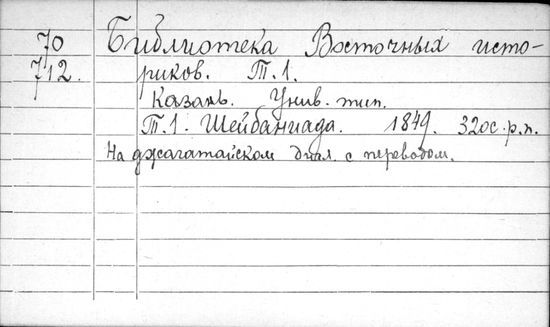 70 Библиотека Восточных исто-
712. риков. Т.1.
Казань. Унив. тип.
Т.1. Шейбаниада. 1849. 32
На джагатайском диал. с переводом.